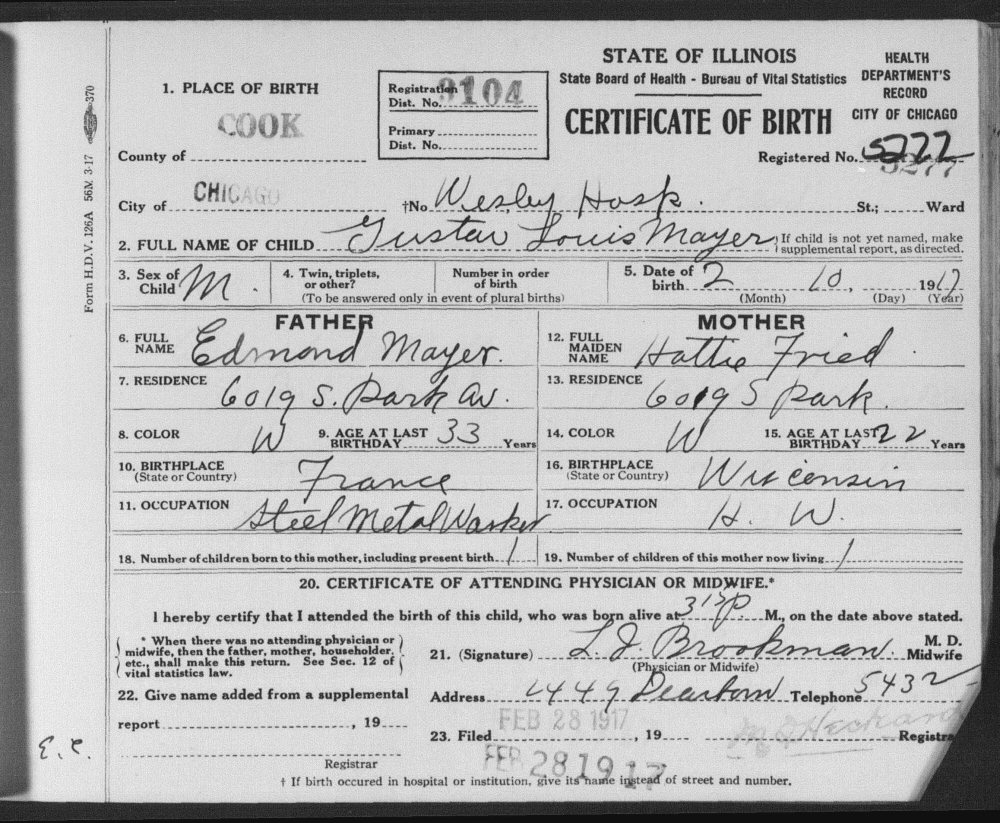 STATE OF ILLINOIS
State Board of Health - Bureau of Vital Statistics
CERTIFICATE OF BIRTH
HEALTH
DEPARTMENT'S
RECORD
CITY OF CHICAGO
Registered No. 5777
Form H.D.V. 126A 56M 3-17 370
1. PLACE OF BIRTH
COOK
County of
Registration
Dist. No. 3104
Primary
Dist. No.
CHICAGO
City of †No. Wesley Hosp. St.; Ward
2. FULL NAME OF CHILD Gustav Louis Mayer { If child is not yet named, make
supplemental report, as directed.
3. Sex of
Child M.
4. Twin, triplets,
or other?
Number in order
of birth
(To be answered only in event of plural births)
5. Date of
birth 2 10, 1917
(Month) (Day) (Year)
FATHER
6. FULL
NAME Edmond Mayer.
7. RESIDENCE 6019 S. Park Av.
8. COLOR W 9. AGE AT LAST
BIRTHDAY 33 Years
10. BIRTHPLACE
(State or Country) France
11. OCCUPATION Steel Metal Worker
18. Number of children born to this mother, including present birth 1
MOTHER
12. FULL
MAIDEN
NAME Hattie Fried.
13. RESIDENCE 6019 S Park.
14. COLOR W 15. AGE AT LAST
BIRTHDAY 22 Years
16. BIRTHPLACE
(State or Country) Wisconsin
17. OCCUPATION H. W.
19. Number of children of this mother now living 1
20. CERTIFICATE OF ATTENDING PHYSICIAN OR MIDWIFE.*
I hereby certify that I attended the birth of this child, who was born alive at P. M., on the date above stated.
* When there was no attending physician or
midwife, then the father, mother, householder,
etc., shall make this return. See Sec. 12 of
vital statistics law.
21. (Signature) L. J. Brookman. M. D.
Midwife
(Physician or Midwife)
22. Give name added from a supplemental
report , 19
Registrar
Address 4449 Dearborn Telephone 5432
FEB 28 1917
23. Filed , 19 Registrar
FEB 28 1917
E. C.
† If birth occured in hospital or institution, give its name instead of street and number.